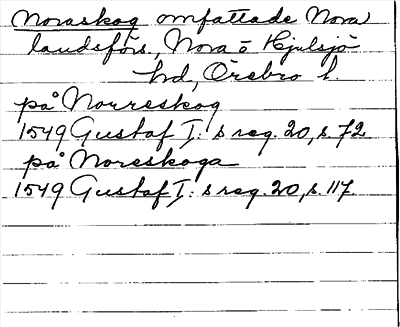 Noraskog omfattade Nora
landsförs, Nora o Hjulsjö
hd, Örebro l.
på Norreskog
1549 Gustaf I:s reg. 20, s. 72
på Noreskoga
1549 Gustaf I:s reg. 20, s. 117